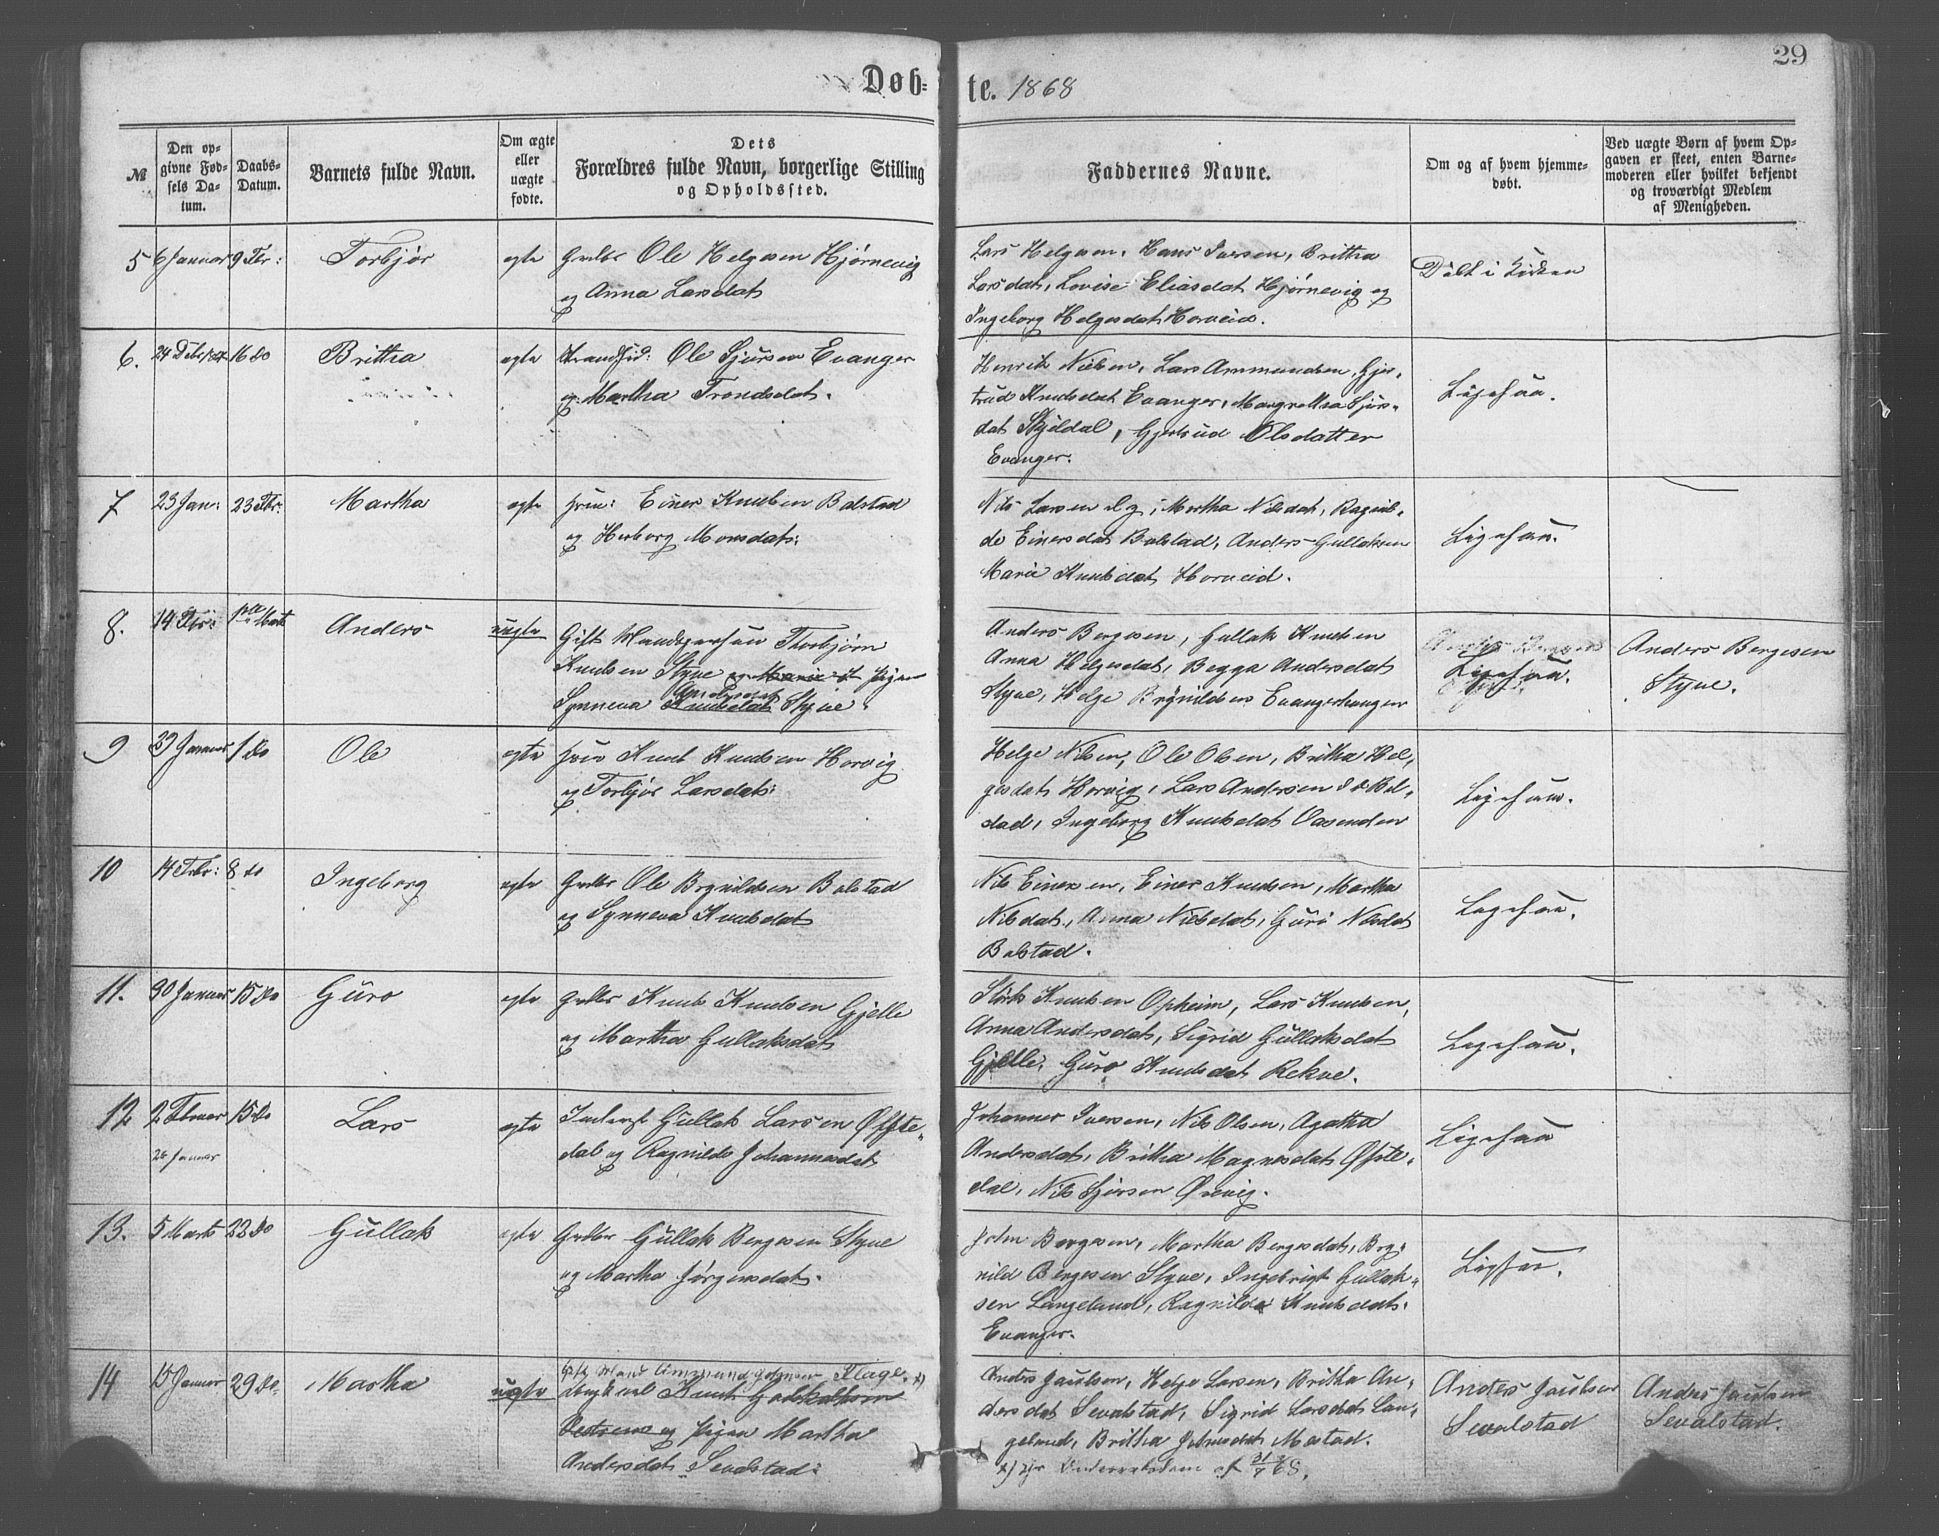 29
Døb- te. 1868
№
Den opgivne Fødsels Datum.
Daabs-Datum.
Barnets fulde Navn.
Om ægte eller uægte fødte.
Dets Forældres fulde Navn, borgerlige Stilling og Opholdssted.
Faddernes Navne.
Om og af hvem hjemmedøbt.
Ved uægte Børn af hvem Opgaven er skeet, enten Barnemoderen eller hvilket bekjendt og troværdigt Medlem af Menigheden.
5 6 Januar 9 Fbr: Torbjør egte Ole Helgesen Hjørnevig
og Anna Larsdat
Lars Helgesen, Hans Iversen, Brittha
Larsdat, Lovise Eliasdat Hjørnevig og
Ingeborg Helgesdat Horveid.
Døbt i Kirken
6. 16 do Brittha egte Strandsid: Ole Sjursen Evanger
og Martha Trondsdat.
Henrik Nielsen, Lars Ammundsen, Gjer-
trud Knudsdat Evanger, Magrettha Sjurs-
dat Skjeldal, Gjertrud Olsdatter
Evanger.
Ligesaa.
7 23 Jan: 23 Fbr. Martha egte Einer Knudsen Bolstad
og Herborg Monsdat:
Nils Larsen, Martha Nilsdat, Ragnil-
de Einersdat Bolstad, Anders Gullaksen
Marie Knudsdat Horveid.
Ligesaa.
8. 14 Fbr: Marts Anders uegte Gift Mandsperson Thorbjørn
Knudsen Styve og Marie Pigen
Synneva Knudsdat Andersdat Styve.
Anders Bergesen, Gullak Knudsen
Anna Helgesdat, Begga Andersdat
Styve, Helge Brynildsen Evangerhaugen
Ligesaa.
Anders Bergesen
Styve.
9 Januar 1 do Ole egte Knut Knudsen Horvig
og Torbjør Larsdat:
Helge Nilsen, Ole Olsen, Brittha Hel-
gesdat Horvig, Lars Andersen Bol-
stad, Ingeborg Knudsdat Vasenden
Ligesaa.
10 14 Febr: 8 do Ingeborg egte Ole Brynildsen Bolstad
og Synneva Knudsdat
Nils Einersen, Einer Knudsen, Martha
Nilsdat, Anna Nilsdat, Guro Nilsdat
Bolstad.
Ligesaa.
11. 30 Januar 15 do Guro egte Knud Knudsen Gjelle
og Martha Gullaksdat
Knudsen Opheim, Lars Knudsen,
Anna Andersdat, Sigrid Gullaksdat
Gjelle, Guro Knudsdat Rekve.
Ligesaa.
12 2 Februar 15 do Lars egte Gullak Larsen Øffste-
dal og Ragnilde Johannesdat
26 Januar
Johannes Iversen, Nils Olsen, Agatha
Andersdat, Brittha Magnesdat Øfste-
dal, Nils Sjursen Ørevig.
Ligesaa
13. 5 Marts 22 do Gullak egte Gullak Bergesen Styve
og Martha Jørgensdat.
John Bergesen, Martha Bergesdat, Bry-
nild Bergesen Styve, Ingebrigt Gullak-
sen Langeland, Ragnilda Knudsdat
Evanger.
Ligesaa.
14 15 Januar 29 do. Martha uegte Ammund Flage. x)
Knut
og Pigen Martha
Andersdat Sevalstad:
Anders Jacobsen, Helge Larsen, Brittha An-
dersdat Sevalstad, Sigrid Larsdat Lan-
geland, Brittha Johnsdat Mestad.
Anders Jacobsen
Sevalstad
Anders Jacobsen
Sevalstad.